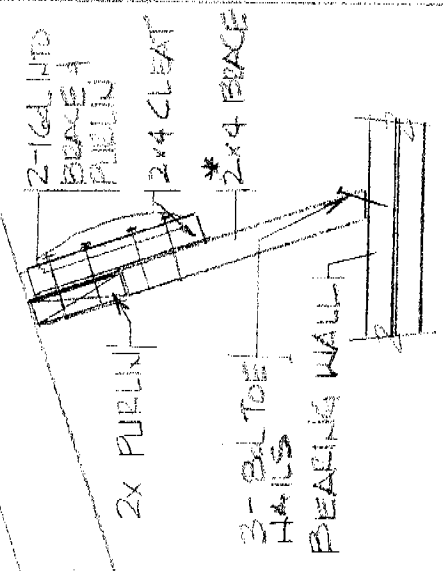 2-16d INTO
BRACE +
PURLIN
2x4 CLEAT
*
2x4 BRACE
2x PURLIN
3-8d TOE
NAILS
BEARING WALL